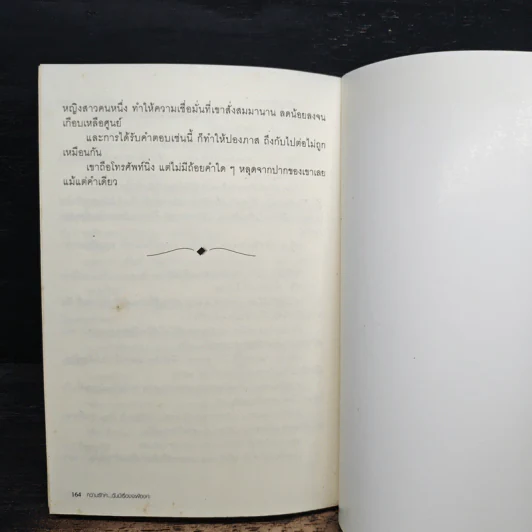 หญิงสาวคนหนึ่ง ทำให้ความเชื่อมั่นที่เขาสั่งสมมานาน ลดน้อยลงจน
เกือบเหลือศูนย์
และการได้รับคำตอบเช่นนี้ ก็ทำให้ปองภาส ถึงกับไปต่อไม่ถูก
เหมือนกัน
เขาถือโทรศัพท์นิ่ง แต่ไม่มีถ้อยคำใด ๆ หลุดจากปากของเขาเลย
แม้แต่คำเดียว
164